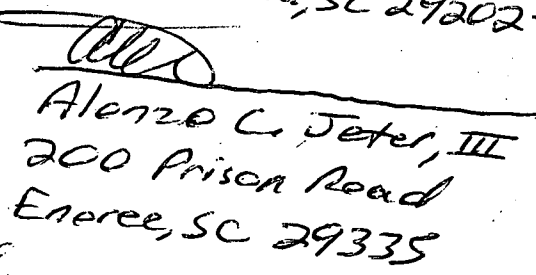 , SC 29202-
Alonzo C. Jeter, III
200 Prison Road
Enoree, SC 29335